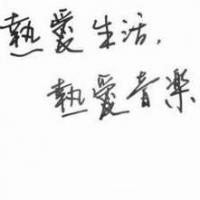 熱愛生活，
熱愛音樂